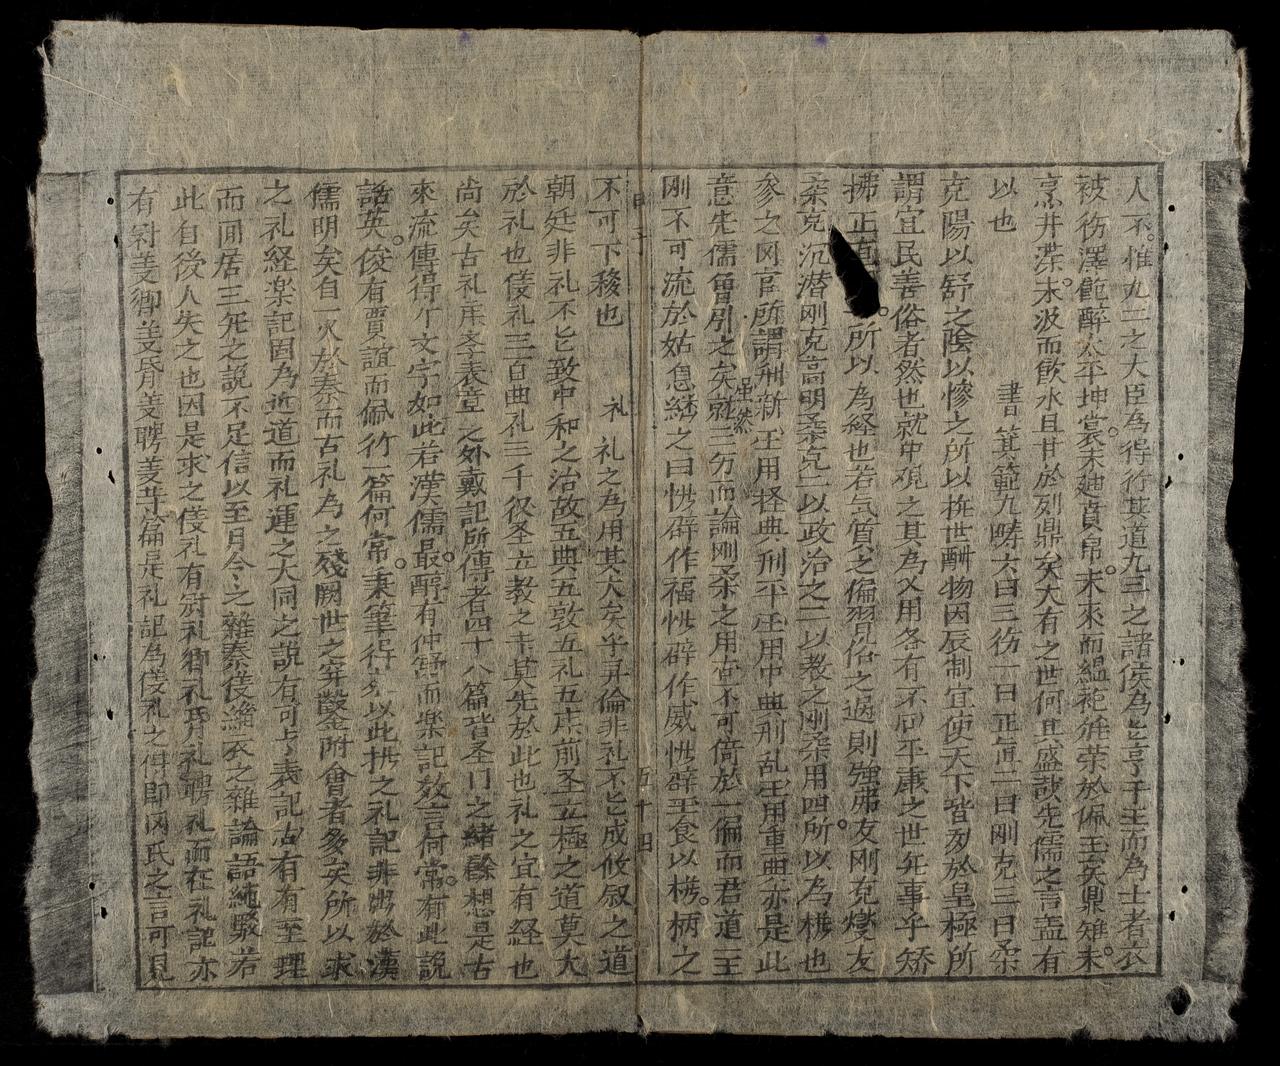 人不惟九二之大臣為得行其道九三之諸侯為亨于王而為士者衣
被徳澤飽醉太平坤裳未廸賁帛未来而緼袍雖荣於佩玉矣鼎雉未
烹井渫未汲而飲水且甘於列鼎矣大有之世何其盛哉先儒之言盖有
以也
書 箕範九疇六曰三徳一曰正直二曰刚克三曰柔
克陽以舒之陰以惨之所以捄世酬物因辰制宜使天下皆敛於皇極所
謂宜民善俗者然也就中观之其為乂用各有不同平康之世无事乎矯
拂正直所以為経也若气質之偏習俗之過則強弗友刚克燮友
柔克沉潜刚克高明柔克二以政治之二以教之刚柔用四所以為権也
参之冈官所謂刑新国用軽典刑平国用中典刑乱国用重典亦是此
意先儒曽引之矣虽然就三分而論刚柔之用固不可倚於一偏而君道主
刚不可流於姑息継之曰惟辟作福惟辟作威惟辟玉食以権柄之
五十四
不可下移也
礼 礼之為用其大矣乎彛倫非礼不成攸叙之道
朝廷非礼不致中和之治故五典五敦五礼五庸前圣立極之道莫大
於礼也儀礼三百曲礼三千後圣立教之莫先於此也礼之宜有経也
尚矣古礼表章之外戴記所傳者四十八篇皆圣门之緒餘想是古
來流傳得个文字如此若漢儒最醇有仲舒而楽記数言何常有此說
話英俊有賈誼而佩竹一篇何常秉筆得来以此拱之礼記非出於漢
儒明矣自一火於秦而古礼為之残闕世之穿鑿附會者多矣所以求
之礼経楽記固為近道而礼運之大同之説有可表記有有至理
而间居三无之説不足信以至月令之雜秦儀緇衣之雜論語純駁若
此自後人失之也因是求之儀礼有冠礼鄉礼昏礼聘礼而在礼記亦
有冠义鄉义昏义聘义等篇是礼記為儀礼之傳即冈氏之言可見